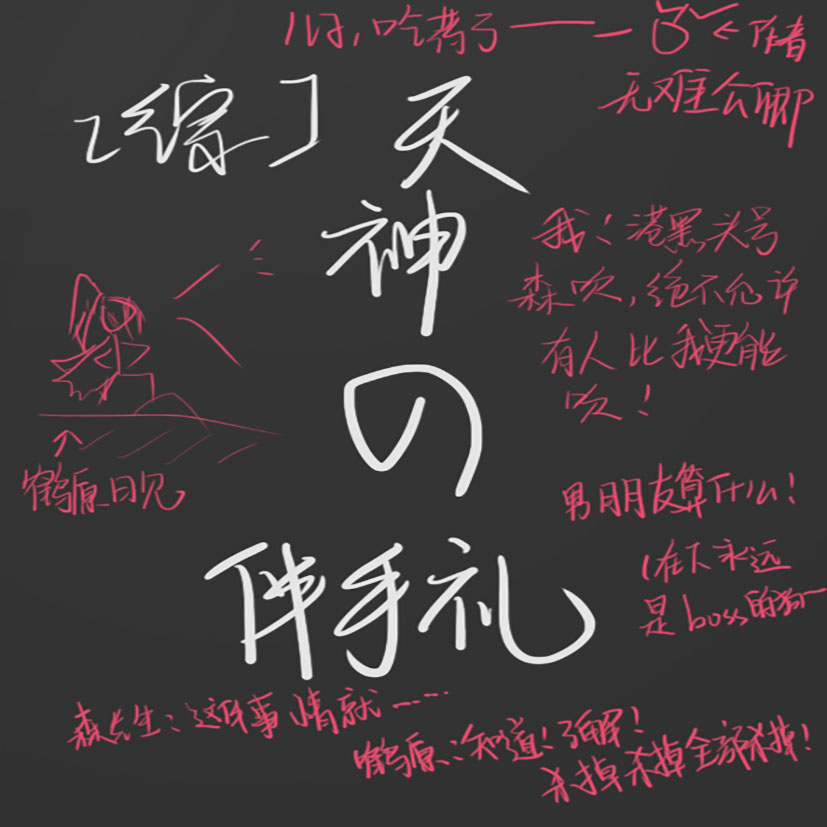 吃薯了
无难公聊
[综]天
神
の
伴手礼
我！港黑头号
森吹，绝不允许
有人比我更能
吹！
鹤原日见
男朋友算什么！
在下永远
是boss的狗一
森先生：这件事情就……
鹤原：知道！了解！
杀掉杀掉全部杀掉！